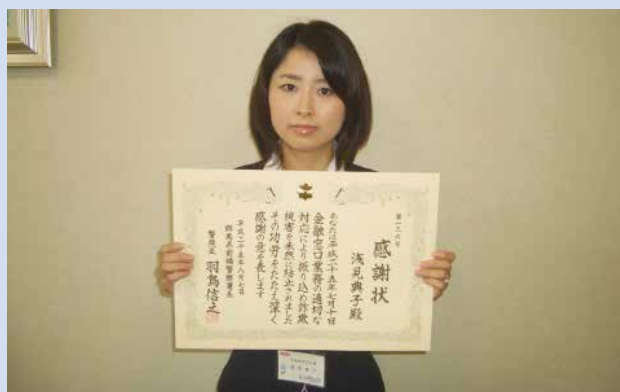 第一三六号
感謝状
浅見典子殿
あなたは平成二十五年七月十日
金融窓口業務の適切な
対応により振り込め詐欺
被害を未然に防止されました
その功労をたたえ深く
感謝の意を表します
平成二十五年八月七日
群馬県前橋警察署長
警視正 羽鳥信之